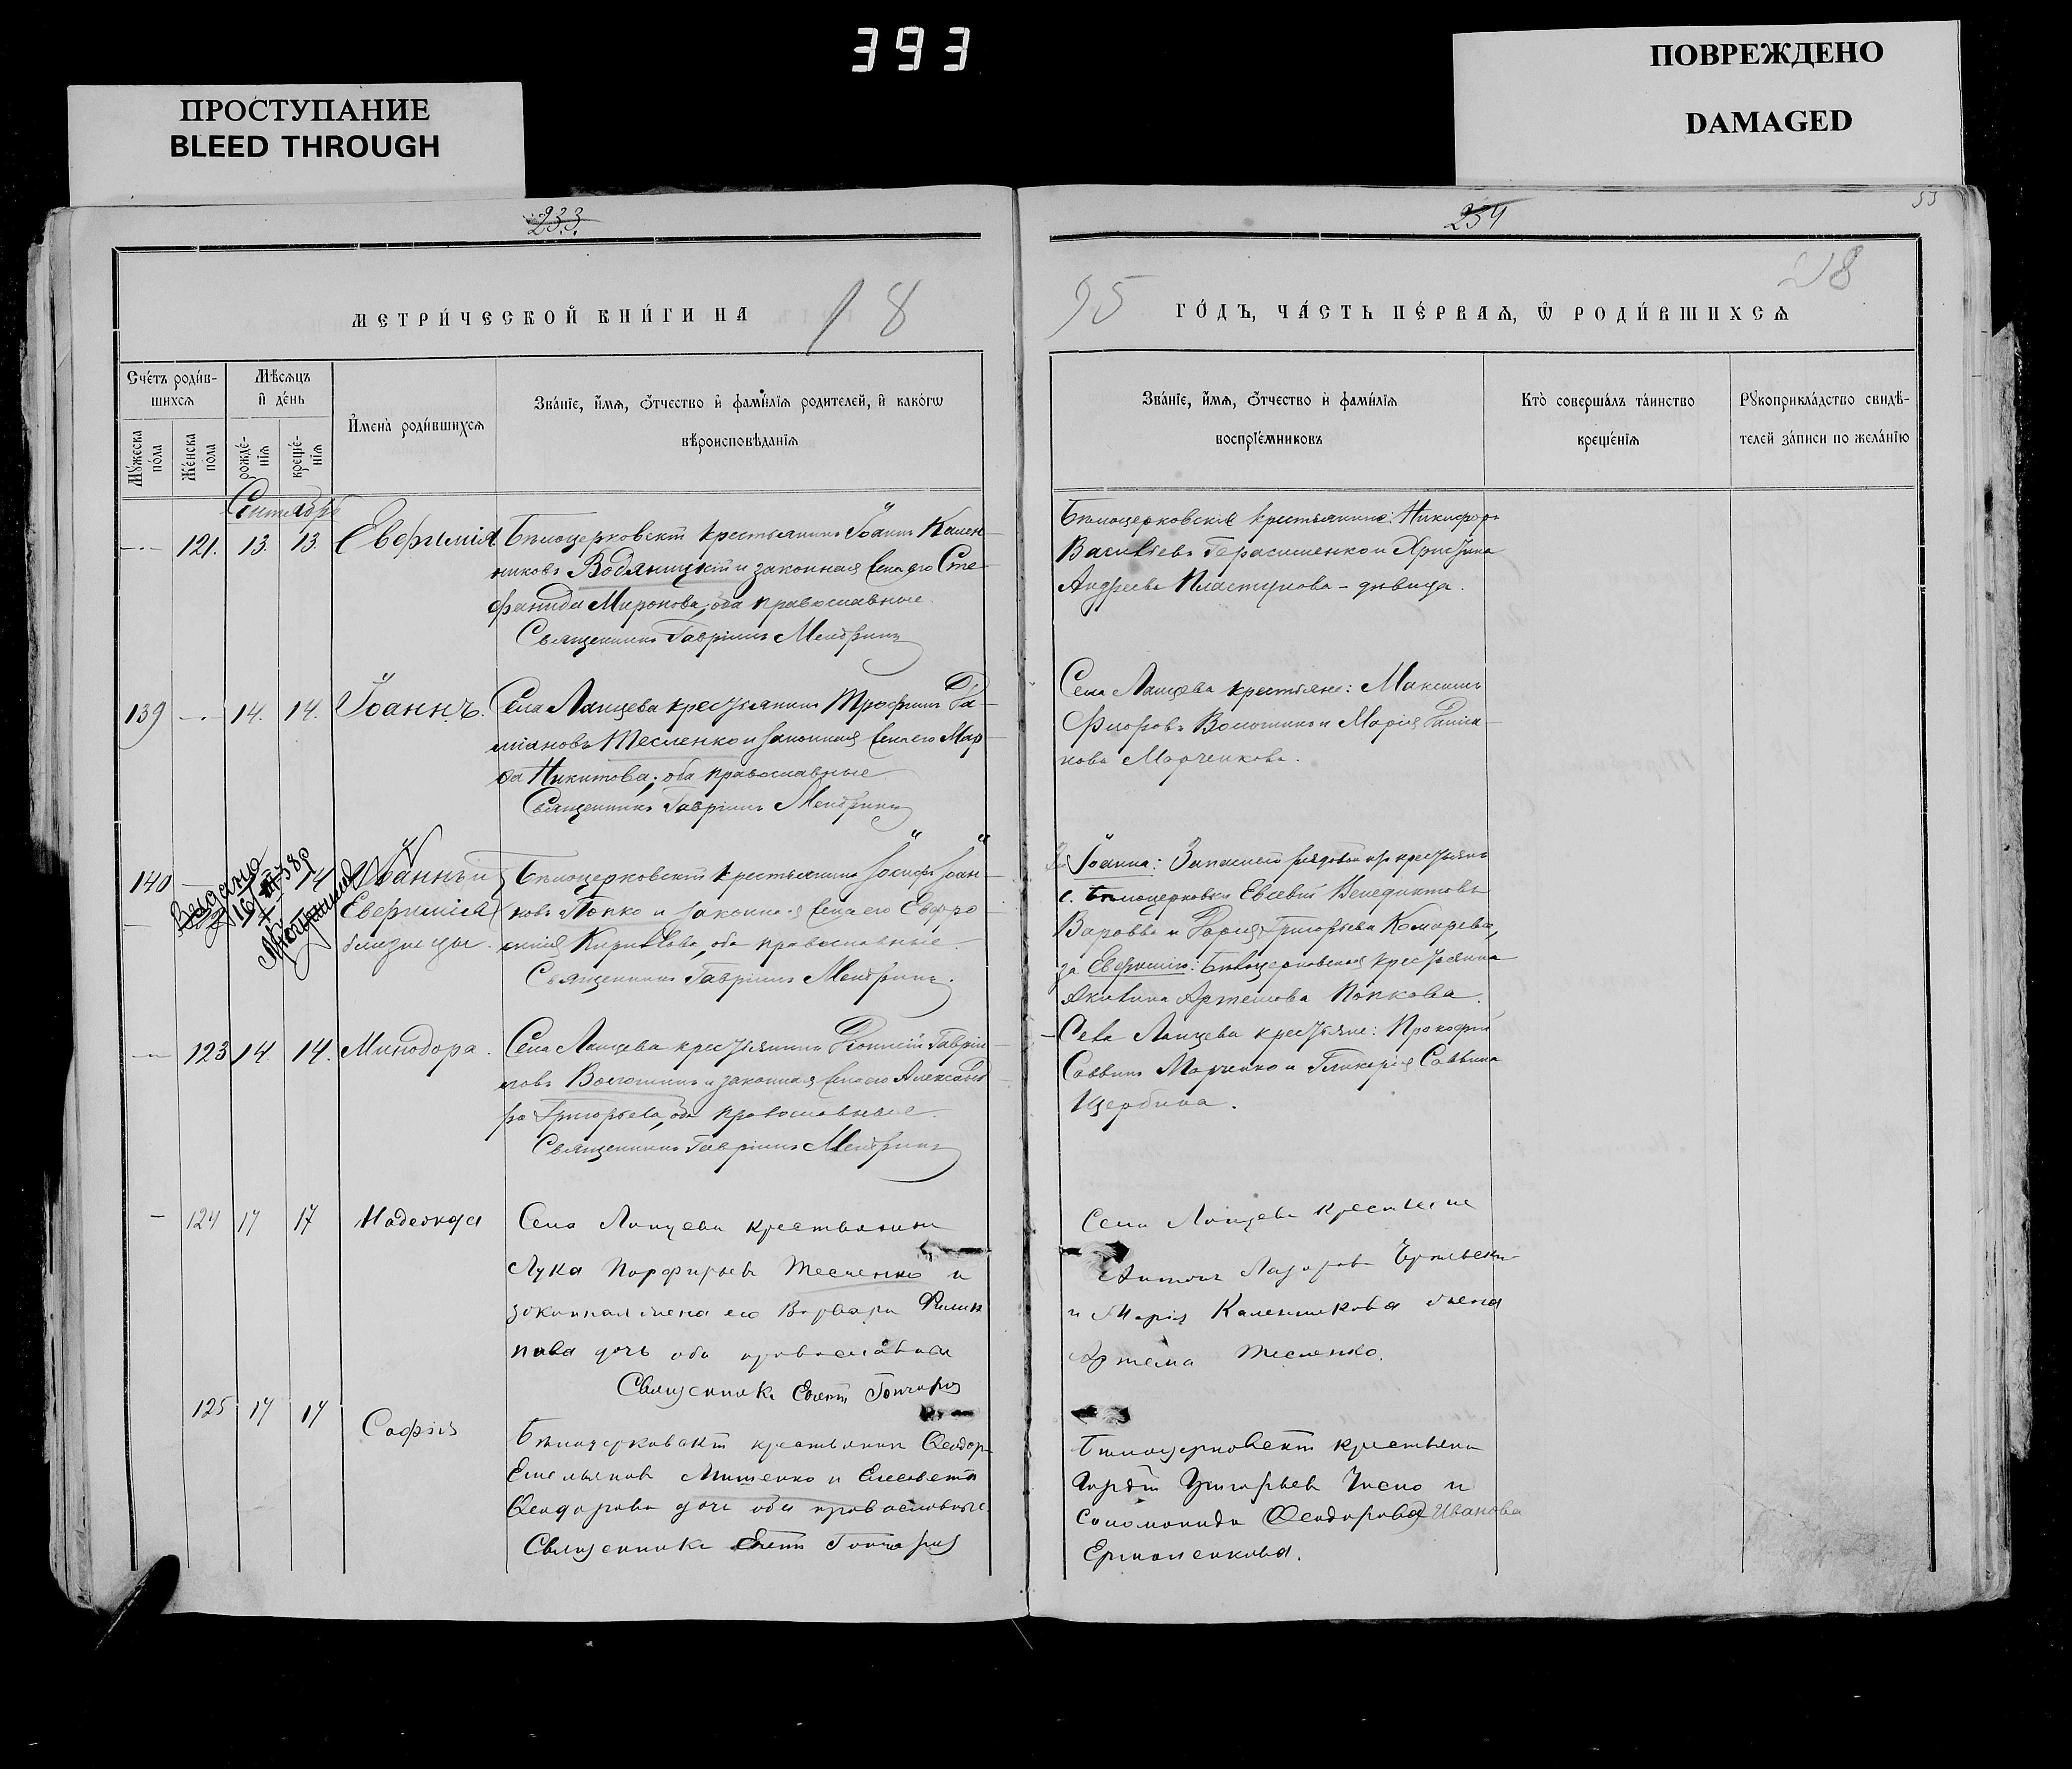 393
ПРОСТУПАНИЕ
BLEED THROUGH
ПОВРЕЖДЕНО
DAMAGED
233
234
53
МЕТРИ́ЧЕСКОЙ КНИ́ГИ НА 18
95 ГО́ДЪ, ЧА́СТЬ ПЕ́РВАѦ, Ѡ РОДИ́ВШИХСѦ
Счетъ роди́вшихсѧ
Мѣсѧцъ и де́нь
Имена̀ роди́вшихсѧ
Зва́нїе, и́мѧ, о́тчество и фами́лїѧ родителей, и како́гѡ
вѣроисповѣ́данїѧ
Му́жеска по́ла
Же́нска по́ла
рожде́нїѧ
креще́нїѧ
Зва́нїе, и́мѧ, о́тчество и фами́лїѧ
воспрїе́мниковъ
Кто̀ соверша́лъ та́инство
креще́нїѧ
Рꙋкоприкла́дство свидѣ́-
телей за́писи по жела́нїю
Сентябрь
121. 13. 13. Евфимія
Бѣлоцерковскій крестьянинъ Іоаннъ Калин-
никовъ Водяницкій и законная жена его Сте-
фанида Миронова, оба православные.
Священникъ Гавріилъ
Бѣлоцерковскіе крестьяне: Никифоръ
Васильевъ Герасименко и Христина
Андреева Пластунова - дѣвица.
139 14. 14. Іоаннъ.
Села Лапцева крестьянинъ Трофимъ Да-
міановъ Тесленко и законная жена его Мар-
ѳа Никитова; оба православные
Священникъ Гавріилъ
Села Лапцева крестьяне: Максимъ
Волошинъ и Марія
Марченкова.
140 14 Іоаннъ и
Евфимія
близнецы.
Выдано
Бѣлоцерковскій крестьянинъ Іосифъ Іоан-
новъ Попко и законная жена его Евфро-
синія Кириллова, оба православные.
Священникъ Гавріилъ
За Іоанна: Запасный рядовой изъ крестьянъ
с. Бѣлоцерковки Евсевій Венедиктовъ
Варавва и Дарія Григорьева Комарева,
за Евфимію: Бѣлоцерковская крестьянка
Акилина Артемова Попкова.
123 14. 14. Минодора.
Села Лапцева крестьянинъ Гаврі-
иловъ Волошинъ и законная жена его Александ-
ра Григорьева, оба православные.
Священникъ Гавріилъ
Села Лапцева крестьяне: Прокофій
Саввинъ Марченко и Гликерія Саввина
Щербина.
124 17 17 Надежда
Села Лапцева крестьянинъ
Лука Порфирьевъ Тесленко и
законная жена его Варвара Филип
пова дочь оба православные
Священникъ Гончаровъ
Села Лапцева крестьяне
Антонъ Лазаревъ
и Марія Каленикова жена
Артема Тесленко.
125 17 17 Софія
Бѣлоцерковскій крестьянинъ Ѳеодоръ
Емельяновъ и Елисавета
Ѳеодорова дочь оба православные
Священникъ Гончаровъ
Бѣлоцерковскій крестьянинъ
Гордій Григорьевъ и
Соломонида Ѳеодорова Иванова
Ермоленкова.